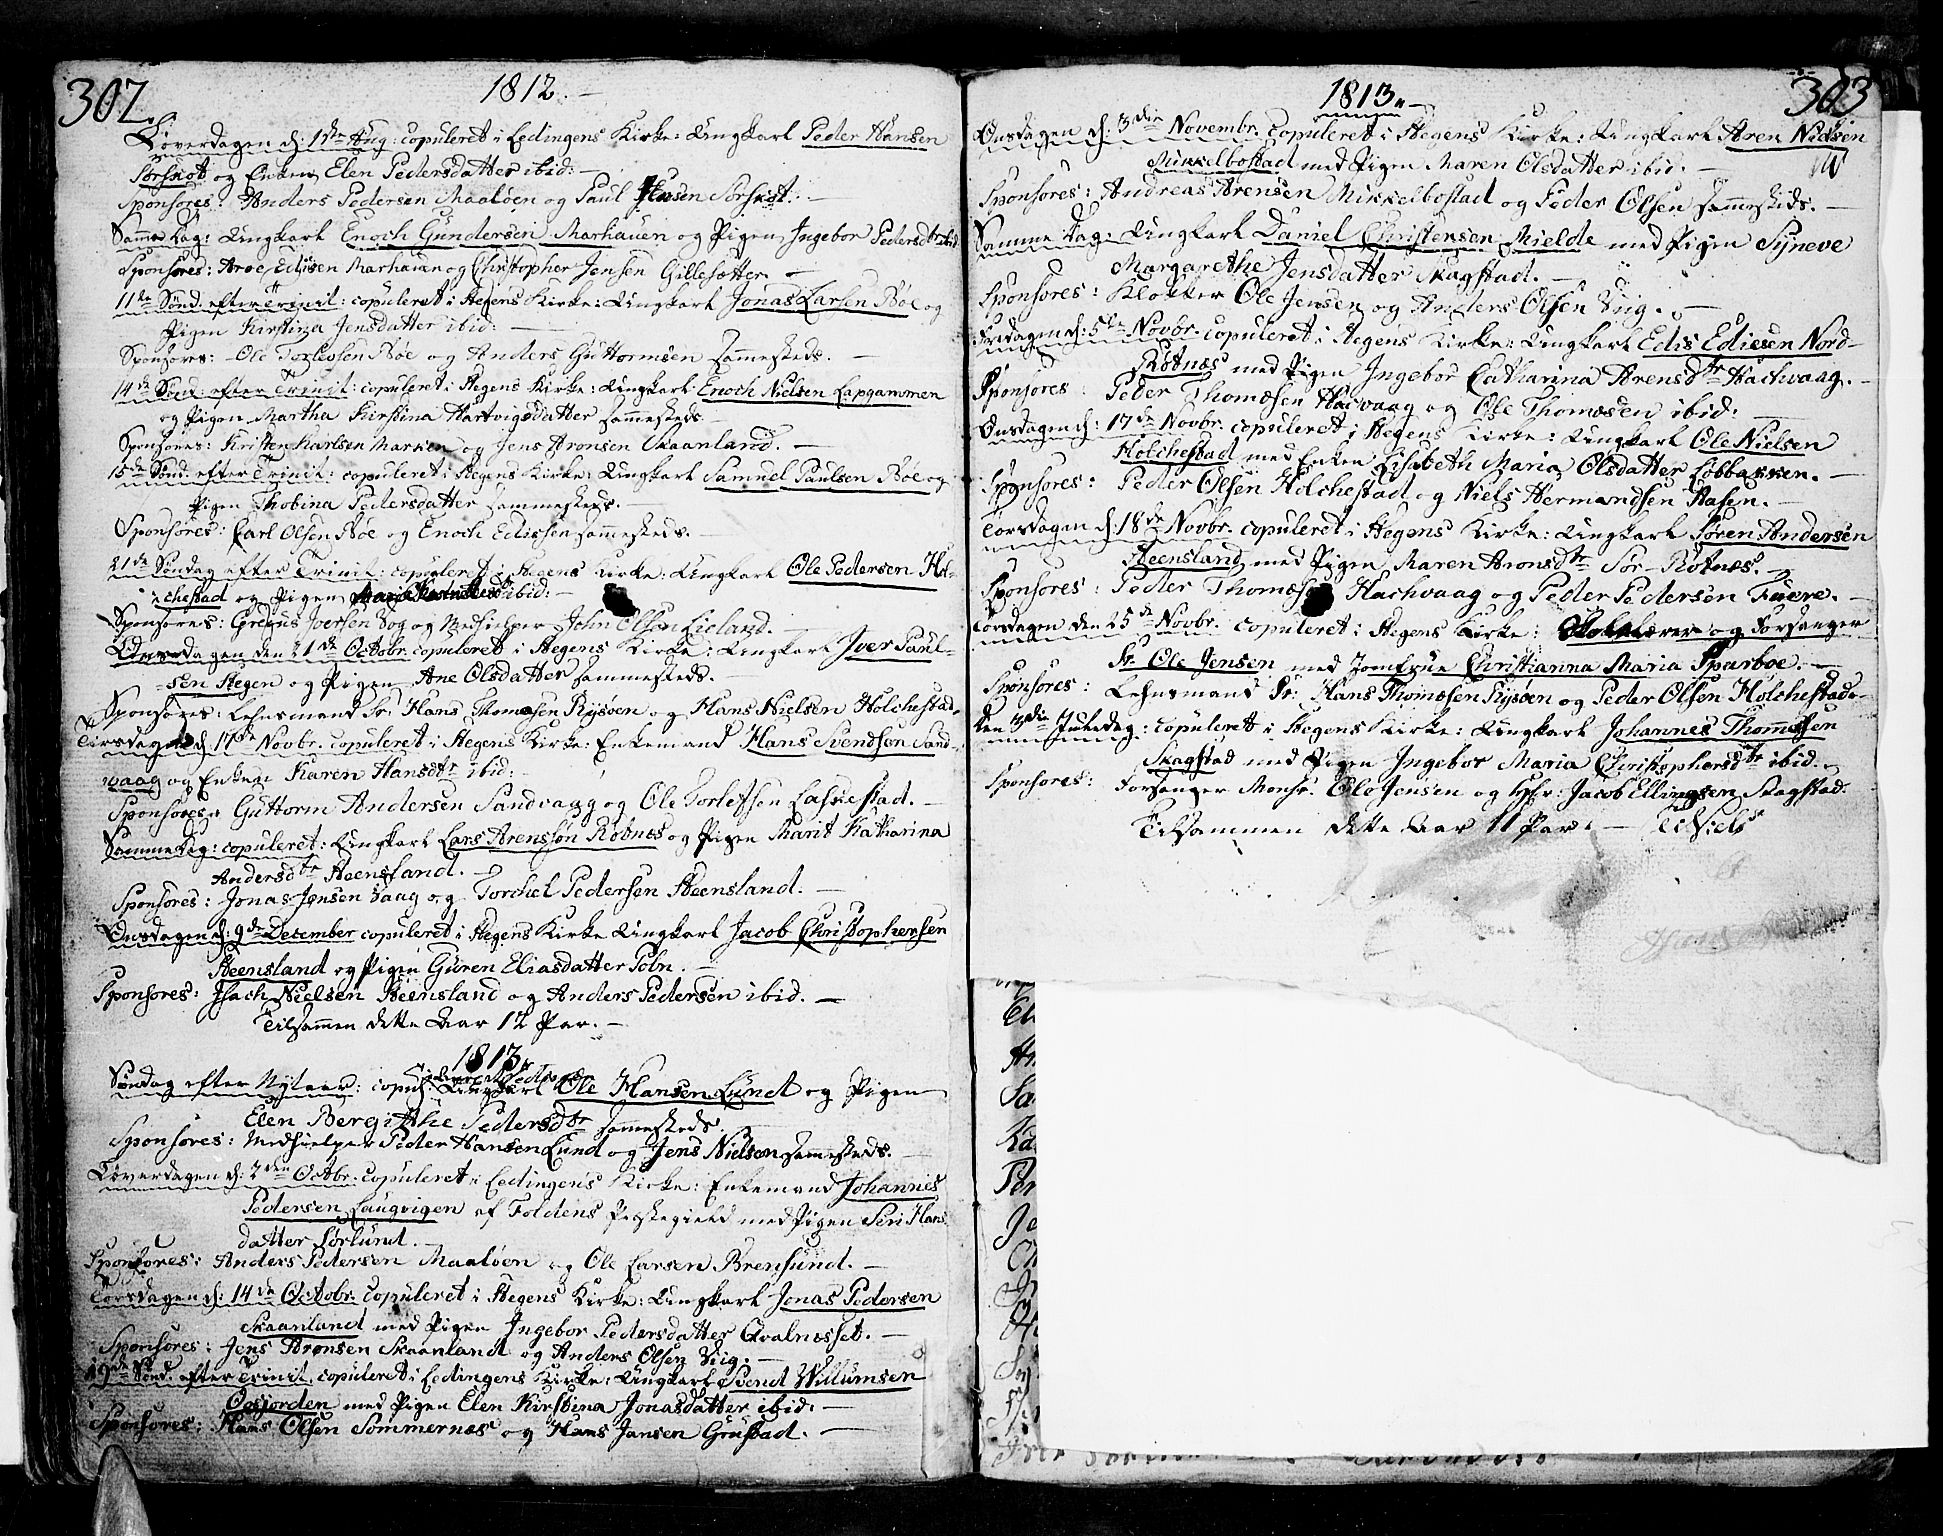 302.
1812. —
Löverdagen d: 1ste Aug: copuleret i Lødingens Kirke: Ungkarl Peder Hansen
Sørskot og Enken Elen Pedersdatter ibid: —
Sponsores: Anders Pedersen Maaløen og Paul Hansen Sørskot. —
Samme Dag: Ungkarl Enoch Gundersen Marhauen og Pigen Ingebor Pedersdtr ibid
Sponsores: Aroe Edisen Marhauen og Christopher Jensen Gillesøtter. —
11te Sønd. efter Trinit: copuleret i Hegens Kirke: Ungkarl Jonas Larsen Bøe og
Pigen Kirstina Jensdatter ibid: —
Sponsores: Ole Torlefsen Bøe og Anders Guttormsen sammesteds. —
14de Sønd: efter Trinit: copuleret i Hegens Kirke: Ungkarl Enoch Nielsen Lapgammen
og Pigen Martha Kirstina Hartvigsdatter sammesteds
Sponsores: Kristen Karlsen Marken og Jens Aronsen Skaanland. —
15de Sønd. efter Trinit: copuleret i Hegens Kirke: Ungkarl Samuel Paulsen Bøe og
Pigen Thobina Pedersdatter sammesteds. —
Sponsores: Carl Olsen Bøe og Enoch Edissen sammesteds. —
21de Søndag efter Trinit: copuleret i Hegens Kirke: Ungkarl Ole Pedersen Hol-
chestad og Pigen Maria ibid: —
Sponsores: Gregus Iversen Sog og Medhielper John Olsen Lieland. —
Onsdagen den 21de Octobr. copuleret i Hegens Kirke: Ungkarl Iver Paul-
sen Hegen og Pigen Ane Olsdatter sammesteds. —
Sponsores: Lehnsmand Sr. Hans Thomæsen Rysøen og Hans Nielsen Holchestad.
Tirsdagen d: 17de Novbr. copuleret i Hegens Kirke: Enkemand Hans Svendsen Sand-
vaag og Enken Karen Hansdtr ibid:
Sponsores: Guttorm Andersen Sandvaag og Ole Torlefsen Lafvestad. —
Samme Dag: copuleret: Ungkarl Lars Arensen Røtnæs og Pigen Marit Katharina
Andersdtr Steensland. —
Sponsores: Jonas Jensen Vaag og Torchel Pedersen Steensland. —
Onsdagen d: 9de December copuleret i Hegens Kirke Ungkarl Jacob Christophersen
Steensland og Pigen Guren Eliasdatter Poln. —
Sponsores: Isach Nielsen Steensland og Anders Pedersen ibid. —
Tilsammen dette Aar 12 Par. —
1813.
Søndag efter Nytaar: copul: Ungkarl Ole Hansen Lund og Pigen
Elen Bergithe Pedersdtr sammesteds. —
Sponsores: Medhielper Peder Hansen Lund og Jens Nielsen sammesteds. —
Löverdagen d: 2den Octbr. copuleret i Lødingens Kirke: Enkemand Johannes
Pedersen Laugvigen af Foldens Præstegield med Pigen Seri Hans
datter Sørlund. —
Sponsores: Anders Pedersen Maaløen og Ole Larsen Brensund. —
Torsdagen d: 14de Octobr. copuleret i Hegens Kirke: Ungkarl Jonas Pedersen
Skaanland med Pigen Ingebor Pedersdatter Qvalnæsset. —
Sponsores: Jens Aronsen Skaanland og Anders Olsen Viig. —
19de Sønd. efter Trinit. copuleret i Lødingens Kirke: Ungkarl Svend Willumsen
Oxfjorden med Pigen Elen Kirstina Jonasdatter ibid: —
Sponsores: Hans Olsen Sommernæs og Hans Jansen Grustad. —
303
1813. —
Onsdagen d: 3die Novembr. copuleret i Hegens Kirke: Ungkarl Aren Nielsen
Mikkelbostad med Pigen Maren Olsdatter ibid: —
Sponsores: Andreas Arensen Mikkelbostad og Peder Olsen sammesteds. —
Samme Dag: Ungkarl Daniel Christensen Mielde med Pigen Syneve
Margarethe Jensdatter Skagstad. —
Sponsores: Klokker Ole Jensen og Anders Olsen Viig. —
Fredagen d: 5te Novbr. copuleret i Hegens Kirke: Ungkarl Edis Edissen Nord-
Røtnæs med Pigen Ingebor Catharina Arensdtr Hachvaag. —
Sponsores: Peder Thomæsen Hacvaag og Ole Thomæsen ibid: —
Onsdagen d: 17de Novbr. copuleret i Hegens Kirke: Ungkarl Ole Nielsen
Holchestad med Enken Lisabeth Maria Olsdatter Løbbassen. —
Sponsores: Peder Olsen Holchestad og Niels Hermandsen Hafen. —
Torsdagen d: 18de Novbr. copuleret i Hegens Kirke: Ungkarl Søren Andersen
Steensland med Pigen Maren Aronsdtr Sør-Røtnæs. —
Sponsores: Peder Thomæsen Hachvaag og Peder Pedersen Fuere. —
Torsdagen den 25de Novbr. copuleret i Hegens Kirke: Skolelærer og Forsanger
Sr. Ole Jensen med Jomfrue Christianna Maria Sparboe. —
Sponsores: Lehnsmand Sr: Hans Thomæsen Rysøen og Peder Olsen Holchestad. —
den 3die Juledag: copuleret i Hegens Kirke: Ungkarl Johannes Thomesen
Skagstad med Pigen Ingebor Maria Christophersdtr ibid. —
Sponsores: Forsanger Monsr. Ole Jensen og Hr: Jacob Ellingsen Skagstad.
Tilsammen dette Aar 11 Par. —